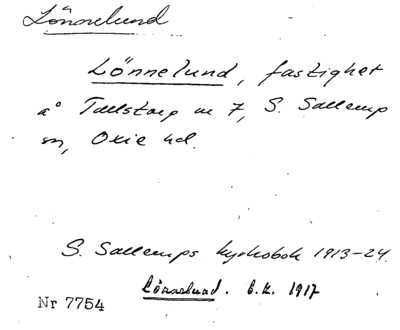 Lönnelund
Lönnelund, fastighet
å Tullstorp nr 7, S. Sallerup
sn, Oxie hd.
S. Sallerups kyrkobok 1913-24.
Lönnelund. E.k. 1917
Nr 7754